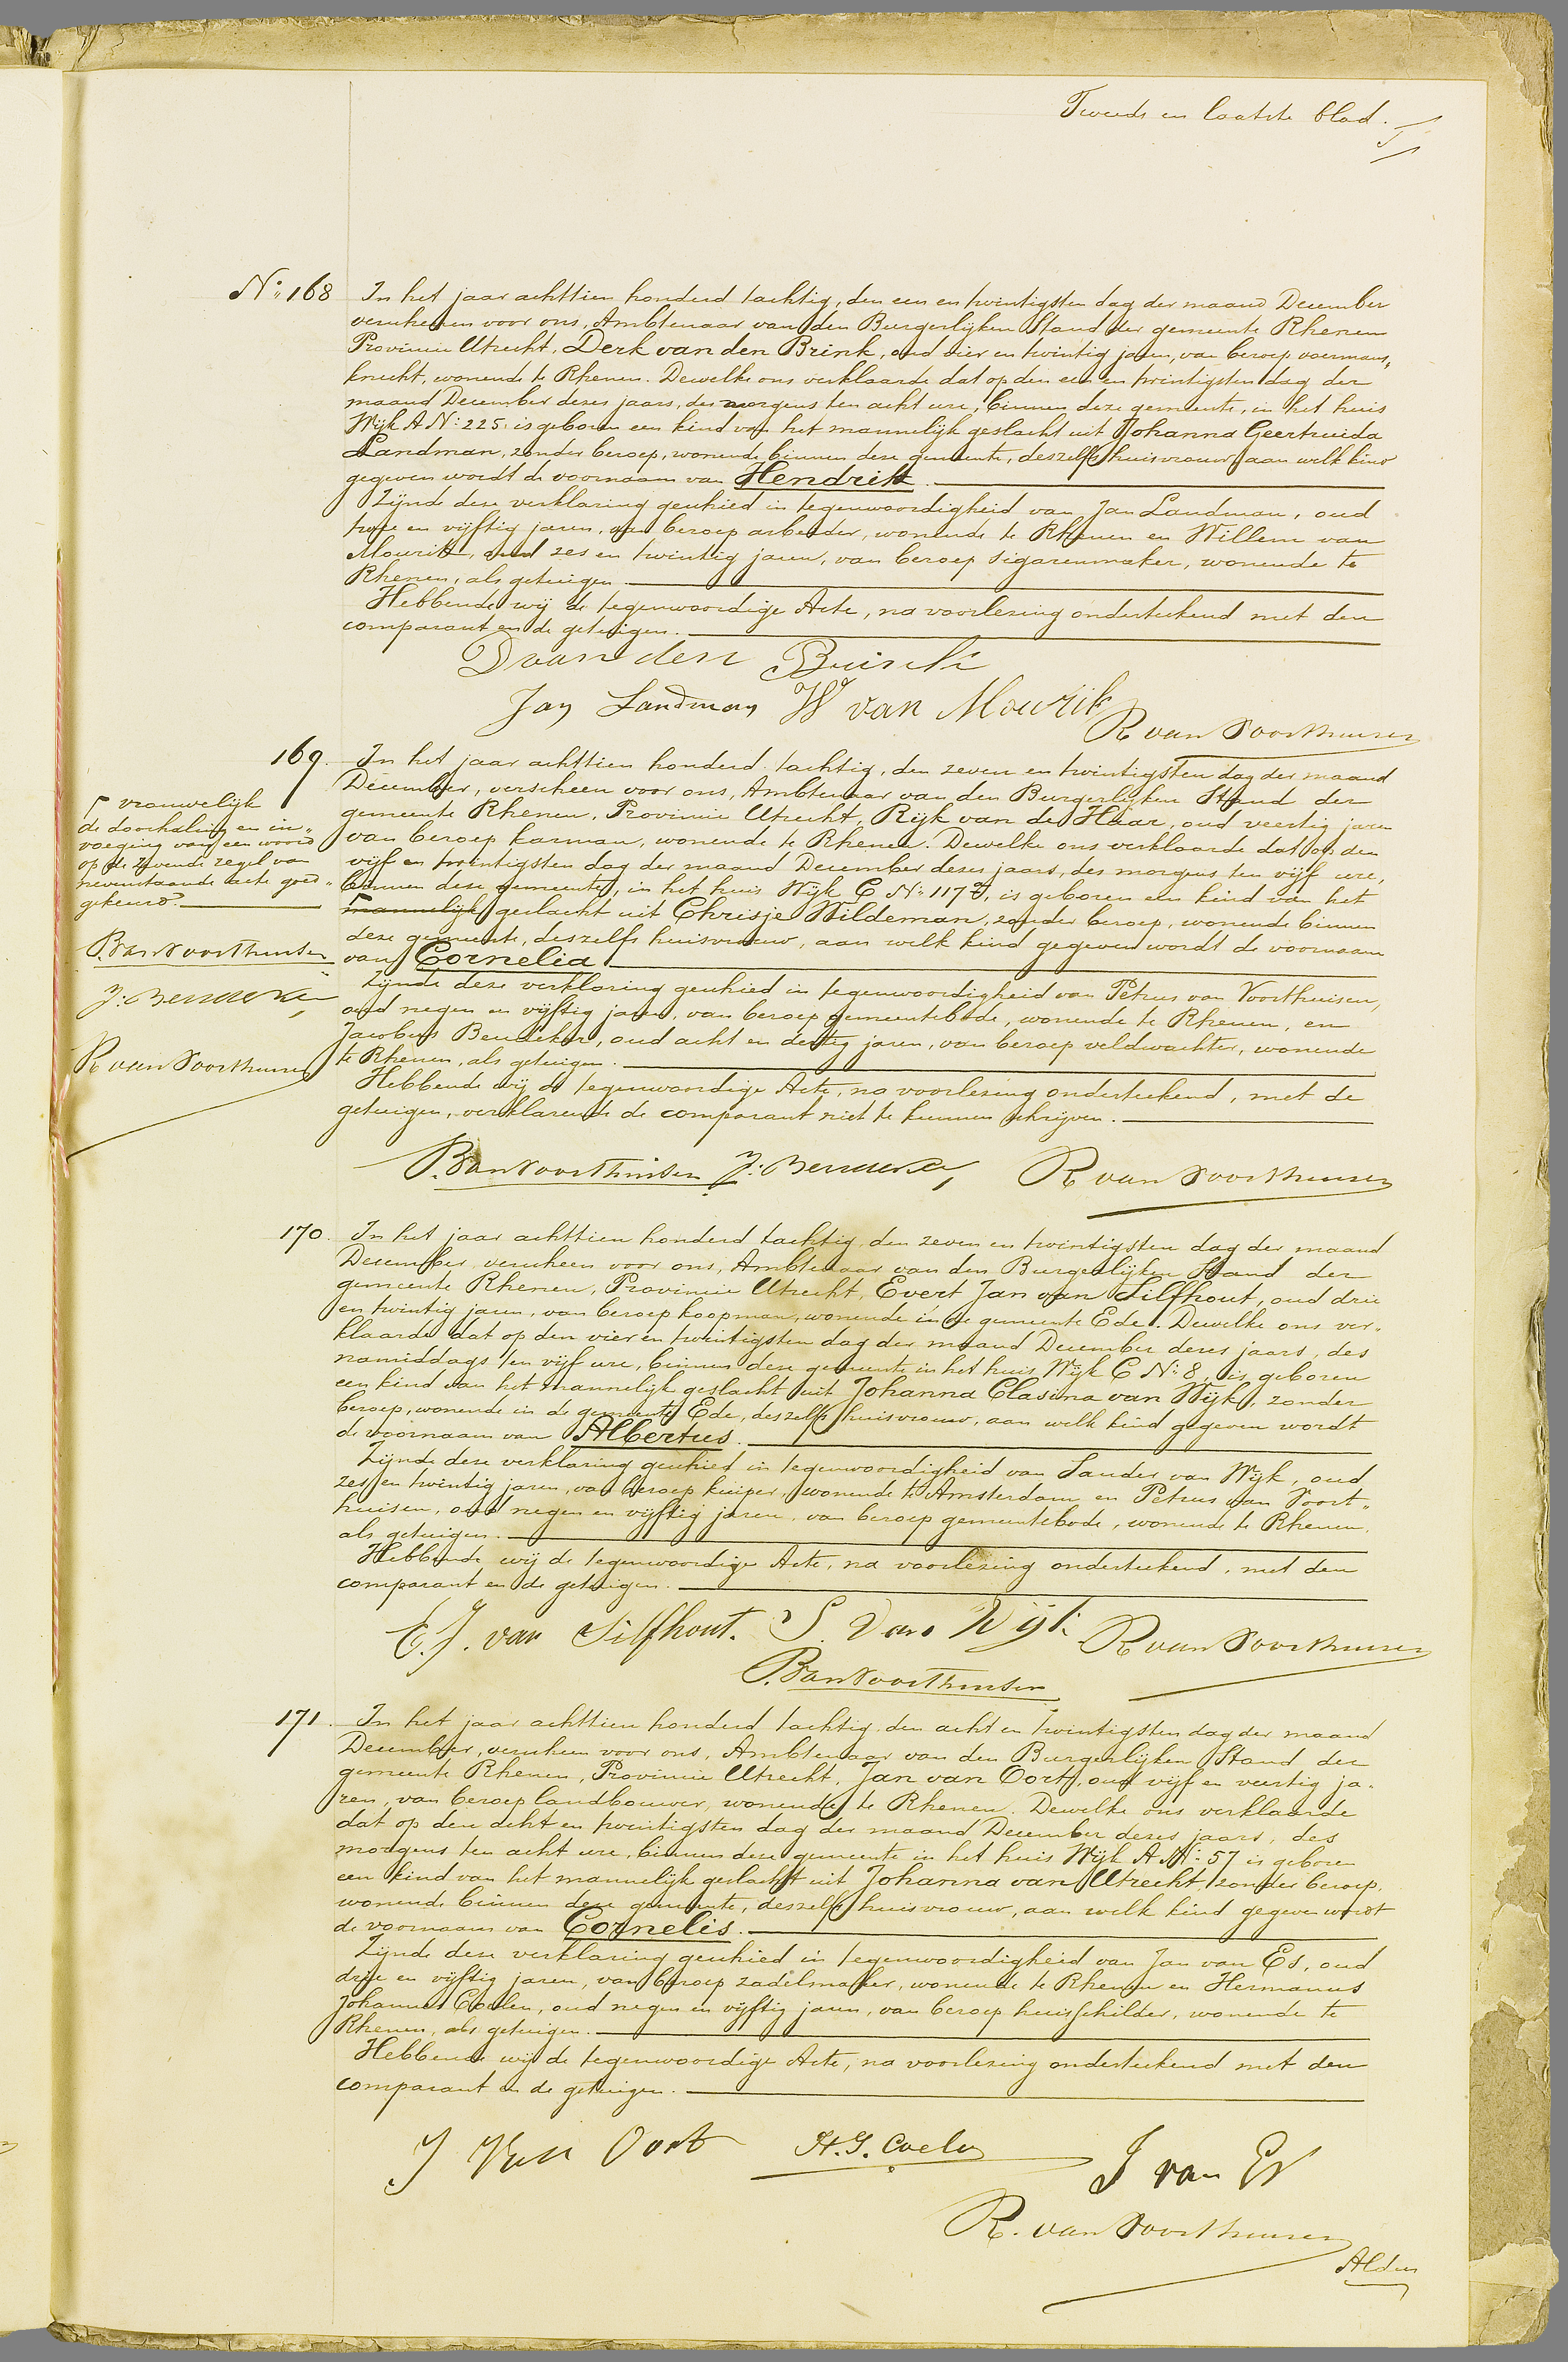 Tweede en laatste blad.
No. 168
In het jaar achttien honderd tachtig, den een en twintigsten dag der maand December
verscheen voor ons, Ambtenaar van den Burgerlijken Stand der gemeente Rhenen
Provincie Utrecht, Derk van den Brink, oud vier en twintig jaren, van beroep voermans„
knecht, wonende te Rhenen. Dewelke ons verklaarde dat op den een en twintigsten dag der
maand December dezes jaars, des morgens ten acht ure, binnen deze gemeente, in het huis
Wijk A No: 225, is geboren een kind van het mannelijk geslacht uit Johanna Geertruida
Landman, zonder beroep, wonende binnen deze gemeente, deszelfs huisvrouw, aan welk kind
gegeven wordt de voornaam van Hendrik.
Zijnde deze verklaring geschied in tegenwoordigheid van Jan Landman, oud
twee en vijftig jaren, van beroep arbeider, wonende te Rhenen en Willem van
Mourik, oud zes en twintig jaren, van beroep sigarenmaker, wonende te
Rhenen, als getuigen.
Hebbende wij de tegenwoordige Acte, na voorlezing onderteekend met den
comparant en de getuigen.
D van den Brink
Jan Landman W van Mourik
R van Voorthuisen
169.
In het jaar achttien honderd tachtig, den zeven en twintigsten dag der maand
December, verscheen voor ons, Ambtenaar van den Burgerlijken Stand der
gemeente Rhenen, Provincie Utrecht, Rijk van de Haar, oud veertig jaren
van beroep karman, wonende te Rhenen. Dewelke ons verklaarde dat op den
vijf en twintigsten dag der maand December dezes jaars, des morgens ten vijf ure,
binnen deze gemeente, in het huis Wijk C No: 117, is geboren een kind van het
mannelijk geslacht uit Chrisje Wildeman, zonder beroep, wonende binnen
deze gemeente, deszelfs huisvrouw, aan welk kind gegeven wordt de voornaam
van Cornelia
Zijnde deze verklaring geschied in tegenwoordigheid van Petrus van Voorthuisen,
oud negen en vijftig jaren, van beroep gemeentebode, wonende te Rhenen, en
Jacobus Beuseker, oud acht en dertig jaren, van beroep veldwachter, wonende
te Rhenen, als getuigen.
Hebbende wij de tegenwoordige Acte, na voorlezing onderteekend, met de
getuigen, verklarende de comparant niet te kunnen schrijven.
vrouwelijk
de doorhaling en in„
voeging van een woord
op de zevende regel van
nevenstaande acte goed„
gekeurd.
P. van Voorthuisen
R van Voorthuisen
P. van Voorthuisen
R van Voorthuisen
170.
In het jaar achttien honderd tachtig, den zeven en twintigsten dag der maand
December, verscheen voor ons, Ambtenaar van den Burgerlijken Stand der
gemeente Rhenen, Provincie Utrecht, Evert Jan van Silfhout, oud drie
en twintig jaren, van beroep koopman, wonende in de gemeente Ede. Dewelke ons ver„
klaarde dat op den vier en twintigsten dag der maand December dezes jaars, des
namiddags ten vijf ure, binnen deze gemeente in het huis Wijk C No: 8, is geboren
een kind van het mannelijk geslacht uit Johanna Clasina van Wijk, zonder
beroep, wonende in de gemeente Ede, deszelfs huisvrouw, aan welk kind gegeven wordt
de voornaam van Albertus.
Zijnde deze verklaring geschied in tegenwoordigheid van Sander van Wijk, oud
zes en twintig jaren, van beroep kuiper, wonende te Amsterdam en Petrus van Voort„
huisen, oud negen en vijftig jaren, van beroep gemeentebode, wonende te Rhenen,
als getuigen.
Hebbende wij de tegenwoordige Acte, na voorlezing onderteekend, met den
comparant en de getuigen.
E. J. van Silfhout. S. van Wijk R van Voorthuisen
P. van Voorthuisen
171.
In het jaar achttien honderd tachtig, den acht en twintigsten dag der maand
December, verscheen voor ons, Ambtenaar van den Burgerlijken Stand der
gemeente Rhenen, Provincie Utrecht, Jan van Oort, oud vijf en veertig ja„
ren, van beroep landbouwer, wonende te Rhenen. Dewelke ons verklaarde
dat op den acht en twintigsten dag der maand December dezes jaars, des
morgens ten acht ure, binnen deze gemeente in het huis Wijk A No: 57 is geboren
een kind van het mannelijk geslacht uit Johanna van Utrecht, zonder beroep,
wonende binnen deze gemeente, deszelfs huisvrouw, aan welk kind gegeven wordt
de voornaam van Cornelis.
Zijnde deze verklaring geschied in tegenwoordigheid van Jan van Es, oud
drie en vijftig jaren, van beroep zadelmaker, wonende te Rhenen en Hermanus
Johannes Coelen, oud negen en vijftig jaren, van beroep huisschilder, wonende te
Rhenen, als getuigen.
Hebbende wij de tegenwoordige Acte, na voorlezing onderteekend met den
comparant en de getuigen.
J van Oort H. J. Coelen J van Es
R. van Voorthuisen
Aldus